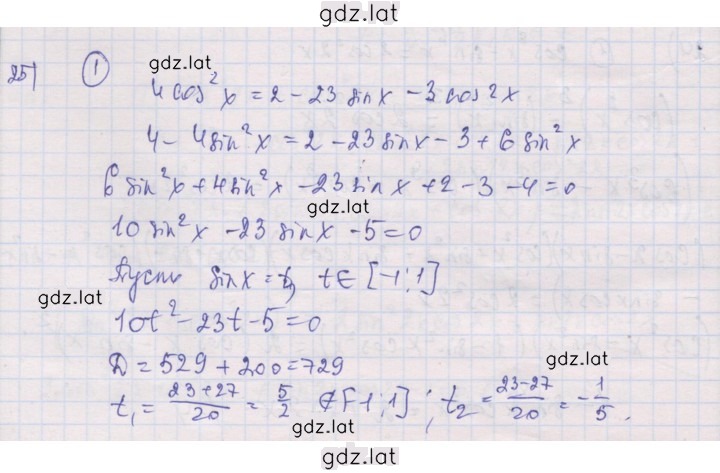 gdz.lat
25) ① gdz.lat
4 cos²x = 2 - 23 sin x - 3 cos 2x
4 - 4 sin²x = 2 - 23 sin x - 3 + 6 sin²x
6 sin²x + 4 sin²x - 23 sin x + 2 - 3 - 4 = 0
gdz.lat
10 sin²x - 23 sin x - 5 = 0
Пусть sin x = t, t ∈ [-1; 1]
gdz.lat
10t² - 23t - 5 = 0
D = 529 + 200 = 729
gdz.lat
t₁ = (23+27)/20 = 5/2 ∉ [-1; 1]; t₂ = (23-27)/20 = -1/5.
gdz.lat